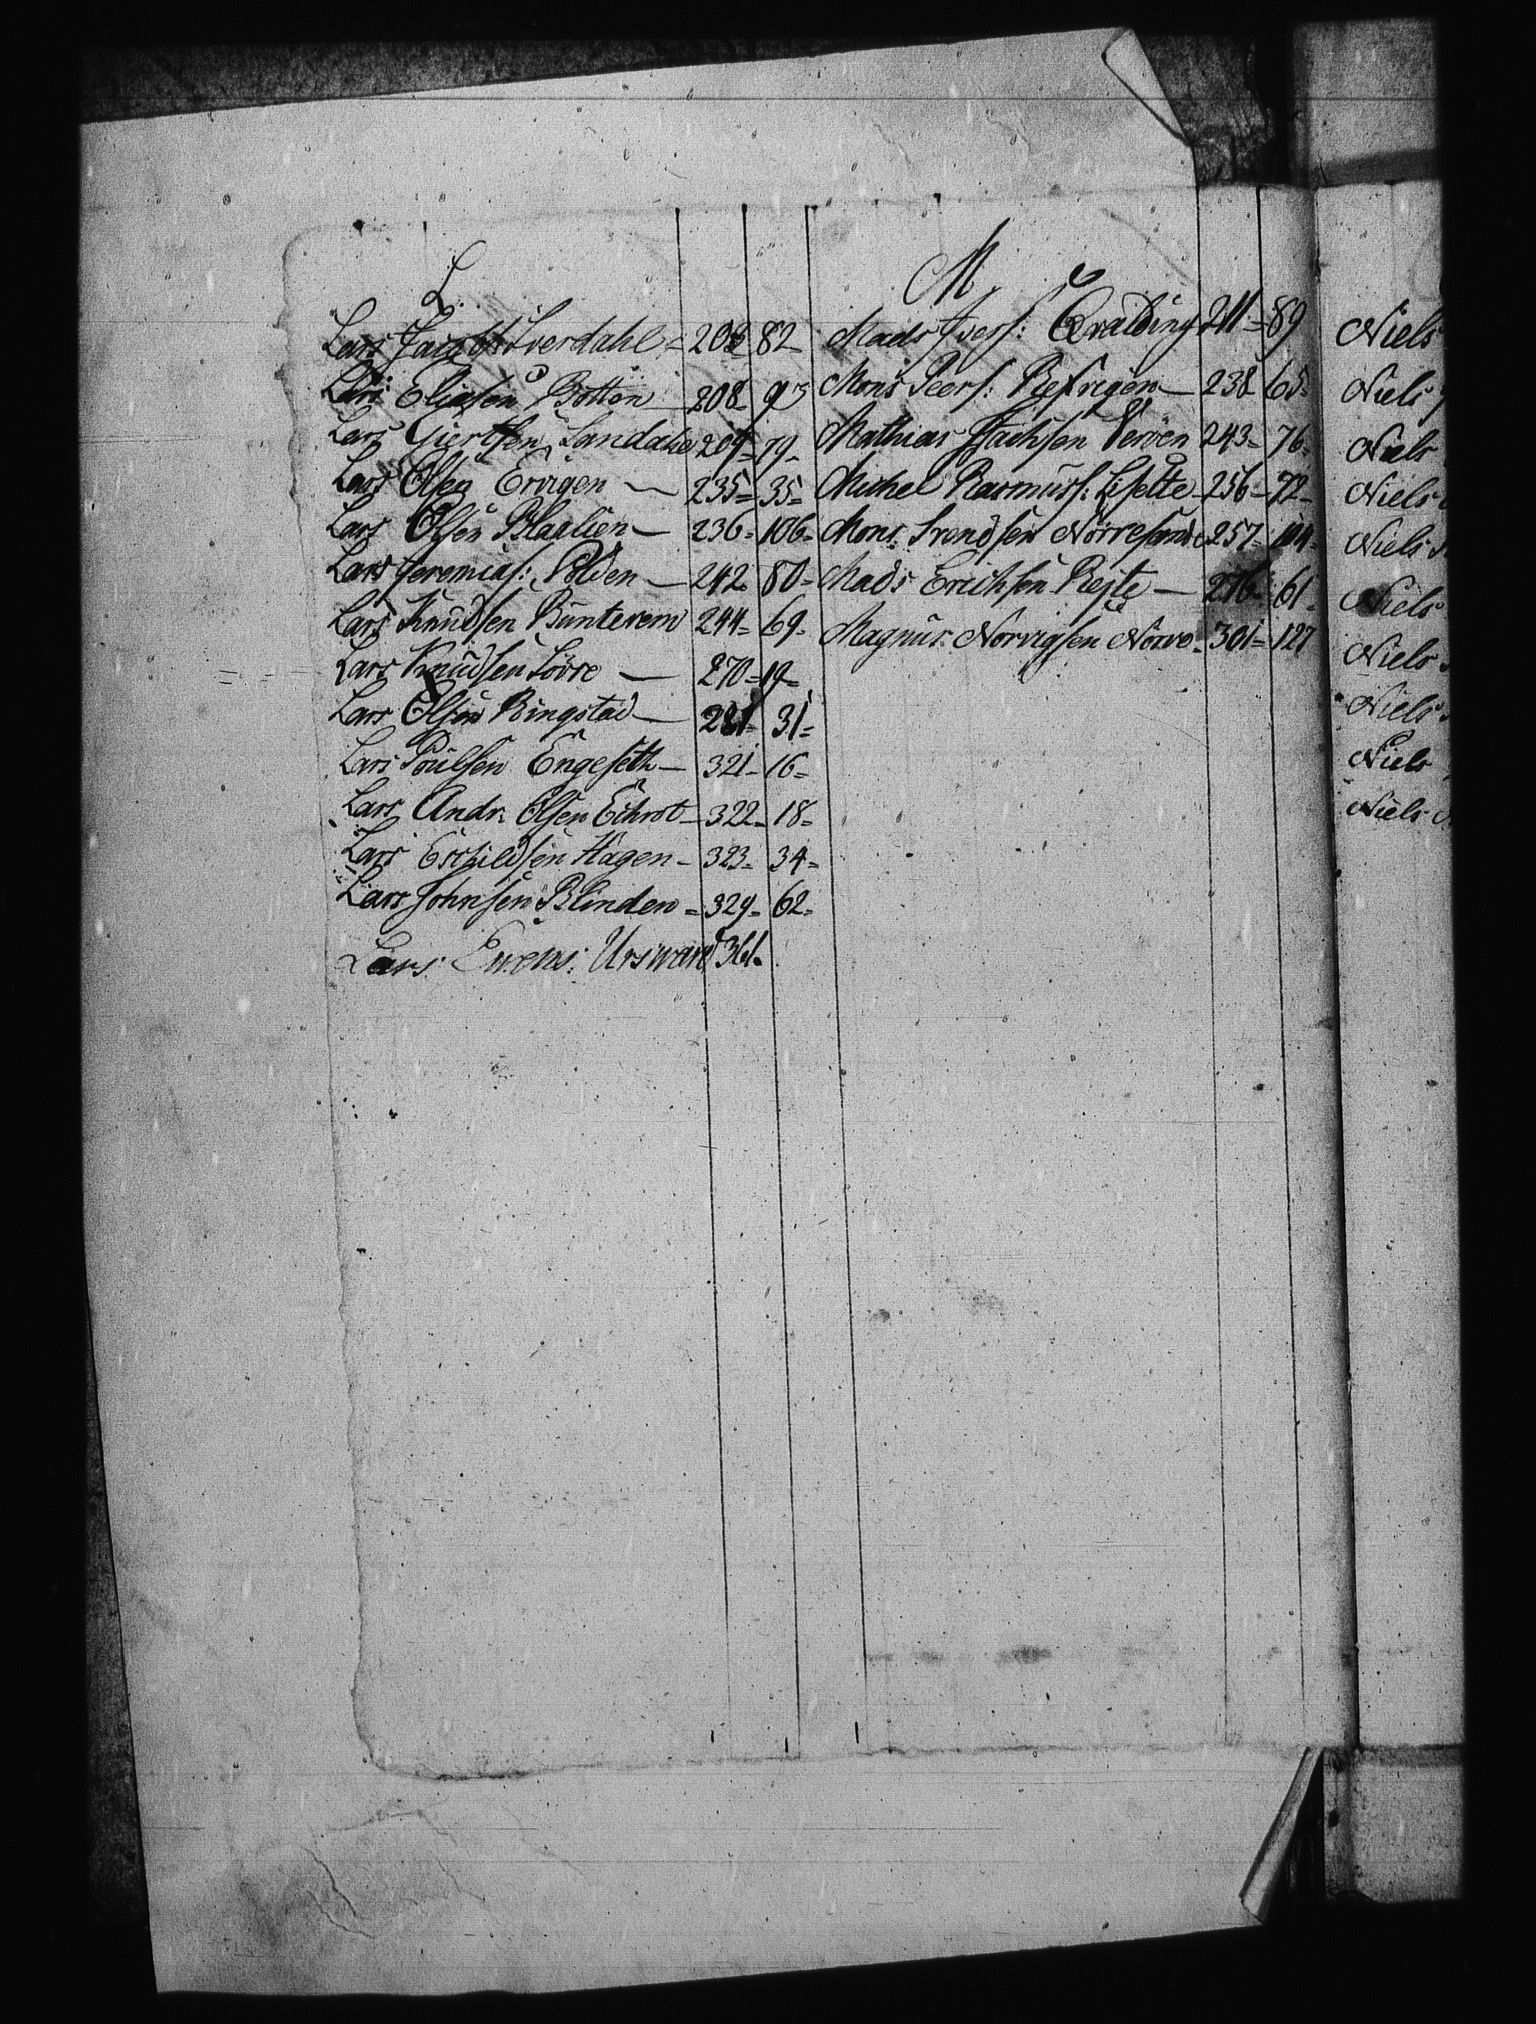 L.
Lars Jacobs: Sverdahl = 208 82 -
Lars Eliasen Botten 208 - 93
Lars Giertsen Sandahl 209 = 79 -
Lars Olsen Ervigen — 235 = 35 =
Lars Olsen Blaalien — 236 = 106 =
Lars Jeremias: Polden — 242 80 -
Lars Knudsen Buntevern 244 = 69 -
Lars Knudsen Lovre — 270 = 19 =
Lars Olsen Ringstad — 281 = 31 =
Lars Poulsen Engeseth — 321 - 16 =
Lars Andr: Olsen Echrot — 322 - 18 =
Lars Eschildsen Hagen - 323 = 34 =
Lars Johnsen Blinden = 329 - 62 =
Lars 361.
M.
Mads Ivers: Qvalding 211 = 89
Mons Peers: Refvigen — 238 65 -
Mathias Isachsen Verøen 243 = 76 -
Michel Rasmus: Lefelte - 256 - 72 -
Mons Svendsen Nørresande 257 - 104 -
Mads Erichsen Rejte — 276 - 61 -
Magnus Norvigsen Norve - 301 = 127
Niels
Niels
Niels
Niels
Niels
Niels
Niels
Niels
Niels
Niels